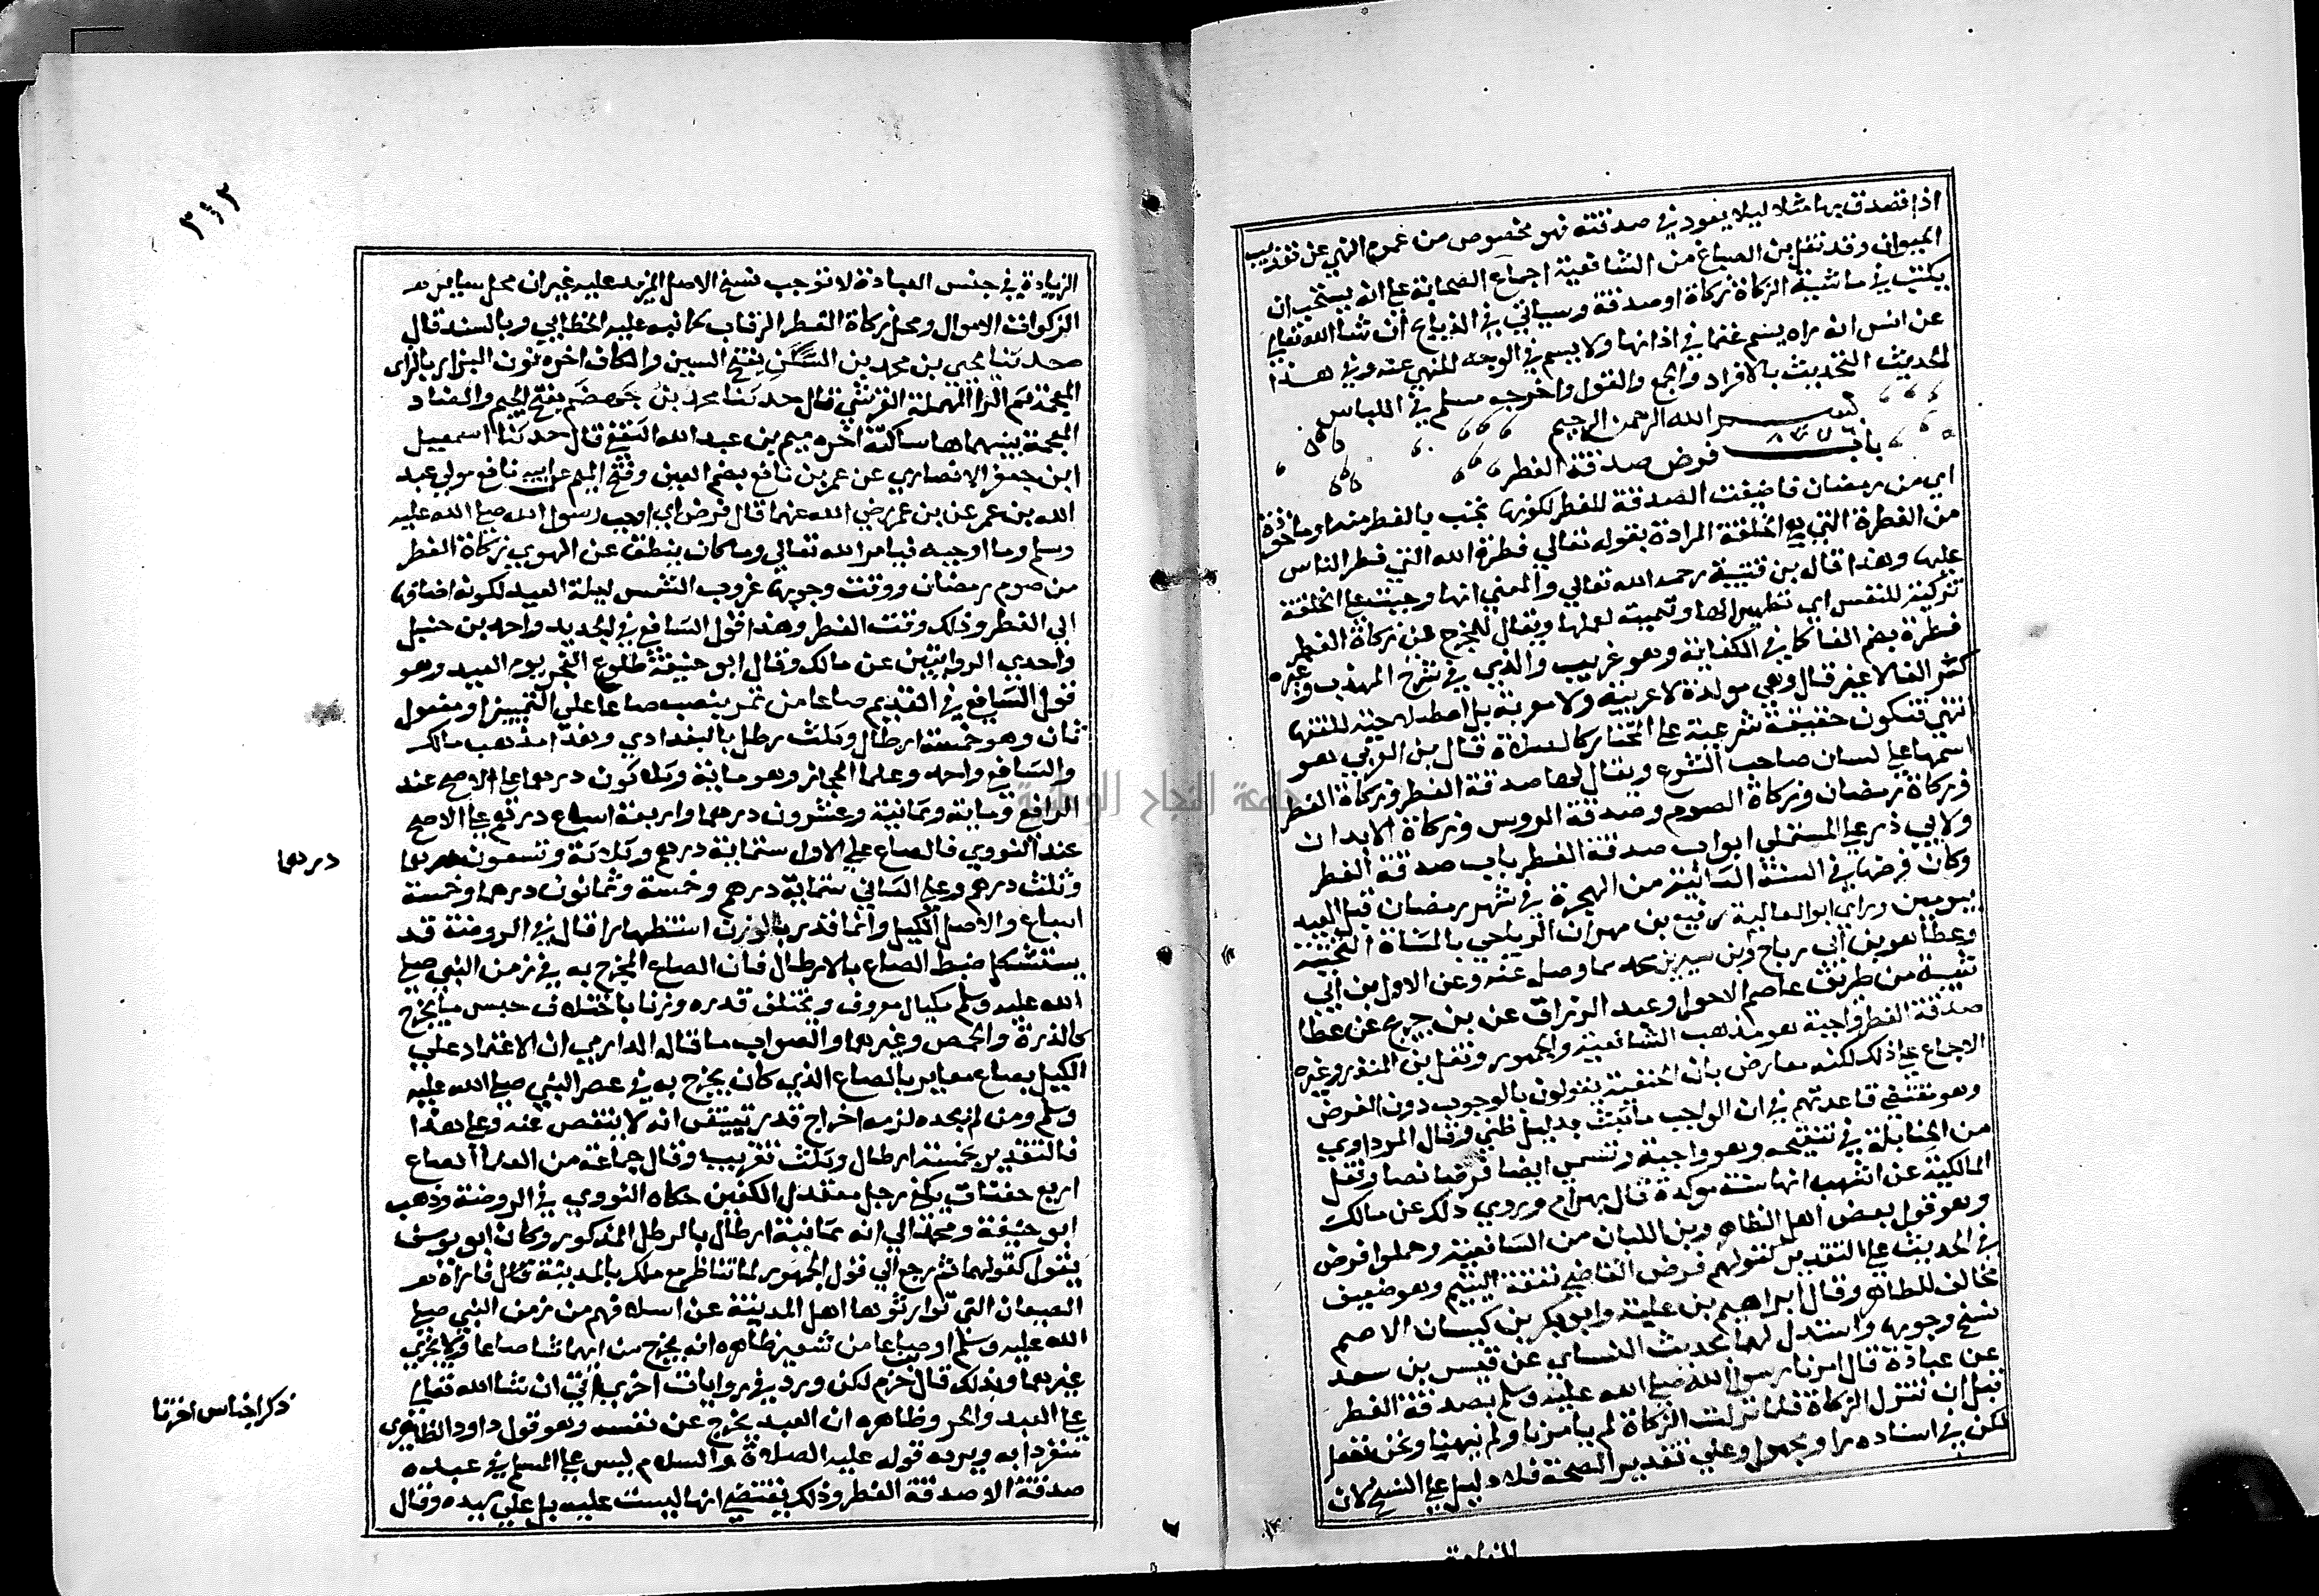 اذا تصدق بها مثلا ليلا يعود في صدقته فهو مخصوص من عموم النهي عن تعذيب
الحيوان وقد نقل بن الصباغ من الشافعية اجماع الصحابة على انه يستحب ان
يكتب في ماشية الزكاة زكاة او صدقة وسياتي في الذبايح ان شا الله تعالي
عن انس انه راه يسم غنما في اذانها ولا يسم في الوجه للنهي عنه وفي هذا
الحديث التحديث بالافراد والجمع والقول واخرجه مسلم في اللباس
بسم الله الرحمن الرحيم
باب فرض صدقة الفطر
اي من رمضان فاضيفت الصدقة للفطر لكونها تجب بالفطر منه او ماخوذة
من الفطرة التي هي الخلقة المرادة بقوله تعالي فطرة الله التي فطر الناس
عليها وهذا قال بن قتيبة رحمه الله تعالي والمعني انها وجبت على الخلقة
تزكية للنفس اي تطهيرا لها وتنمية لعملها ويقال للمخرج عن زكاة الفطر
فطرة بضم الفا كما في الكفاية وهو غريب والذي في شرح المهذب وغيره
كسر الفا لا غير قال وهي مولدة لا عربية ولا معربة بل اصطلاحية للفقها
انتهي فتكون حقيقة شرعية على المختار كالصلاة قال بن العربي هو
اسمها على لسان صاحب الشرع ويقال لها صدقة الفطر وزكاة الفطر
وزكاة رمضان وزكاة الصوم وصدقة الروس وزكاة الابدان
ولابي ذر عن المستملي ابواب صدقة الفطر باب صدقة الفطر
وكان فرضها في السنة الثانية من الهجرة في شهر رمضان قبل العيد
بيومين وراي ابو العالية رفيع بن مهران الرياحي بالمثناة التحتية
وعطا هو بن ابي رباح وبن سيرين محمد مما وصله عنه وعن الاول بن ابي
شيبة من طريق عاصم الاحول وعبد الرزاق عن بن جريج عن عطا
صدقة الفطر واجبة هو مذهب الشافعية والجمهور ونقل بن المنذر وغيره
الاجماع على ذلك لكنه معارض بان الحنفية يقولون بالوجوب دون الفرض
وهو مقتضي قاعدتهم في ان الواجب ما ثبت بدليل ظني وقال المرداوي
من الحنابلة في تنقيحه وهو واجبة وتسمي ايضا فرضا نصا ونقل
المالكية عن اشهب انها سنة موكدة قال بهرام وروي ذلك عن مالك
وهو قول بعض اهل الظاهر وبن اللبان من الشافعية وحملوا فرض
في الحديث على التقدير كقولهم فرض القاضي نفقة اليتيم وهو ضعيف
مخالف للظاهر وقال ابراهيم بن علية وابو بكر بن كيسان الاصم
نسخ وجوبها واستدل لهما بحديث النساي عن قيس بن سعد
عن عبادة قال امرنا رسول الله صلي الله عليه وسلم بصدقة الفطر
قبل ان تنزل الزكاة فلما نزلت الزكاة لم يامرنا ولم ينهنا ونحن نفعل
لكن في اسناده راو مجهول وعلي تقدير الصحة فلا دليل على النسخ لان
الزيادة
٣١٢
الزيادة في جنس العبادة لا توجب نسخ الاصل المزيد عليه غير ان محل ساير
الزكوات الاموال ومحل زكاة الفطر الرقاب كما نبه عليه الخطابي وبالسند قال
حدثنا يحيي بن محمد بن السكن بفتح السين والكاف اخره نون البزار بالزاي
المعجمة ثم الرا المهملة القرشي قال حدثنا محمد بن جهضم بفتح الجيم والضاد
المعجمة بينهما ها ساكنة اخره ميم بن عبد الله الثقفي قال حدثنا اسمعيل
ابن جعفر الانصاري عن عمر بن نافع بضم العين وفتح الميم عن ابيه نافع مولي عبد
الله بن عمر عن بن عمر رضي الله عنهما قال فرض اي اوجب رسول الله صلي الله عليه
وسلم وما اوجبه فبامر الله تعالي وما كان ينطق عن الهوي زكاة الفطر
من صوم رمضان ووقت وجوبها غروب الشمس ليلة العيد لكونه اضافها
الي الفطر وذلك وقت الفطر وهذا قول الشافعي في الجديد واحمد بن حنبل
واحدي الروايتين عن مالك وقال ابو حنيفة طلوع الفجر يوم العيد وهو
قول الشافعي في القديم صاعا من تمر بنصب صاعا علي التمييز او مفعول
ثان وهو خمسة ارطال وثلث رطل بالبغدادي وهذا مذهب مالك
والشافعي واحمد وعلما الحجاز وهو ماية وثلاثون درهما على الاصح عند
الرافعي وماية وثمانية وعشرون درهما واربعة اسباع درهم على الاصح
عند النووي فالصاع علي الاول ستماية درهم وثلاثة وتسعون درهما
درهما
وثلث درهم وعلى الثاني ستماية درهم وخمسة وثمانون درهما وخمسة
اسباع والاصل الكيل وانما قدر بالوزن استظهارا قال في الروضة قد
يستشكل ضبط الصاع بالارطال فان الصاع المخرج به في زمن النبي صلي
الله عليه وسلم مكيال معروف ويختلف قدره وزنا باختلاف جنس ما يخرج
كالذرة والحمص وغيرهما والصواب ما قاله الدارمي ان الاعتماد علي
الكيل بصاع معاير بالصاع الذي كان يخرج به في عصر النبي صلي الله عليه
وسلم ومن لم يجده لزمه اخراج قدر يتيقن انه لا ينقص عنه وعلى هذا
فالتقدير بخمسة ارطال وثلث تقريب وقال جماعة من العلما الصاع
اربع حفنات بكفي رجل معتدل الكفين حكاه النووي في الروضة وذهب
ابو حنيفة ومحمد الي انه ثمانية ارطال بالرطل المذكور وكان ابو يوسف
يقول كقولهما ثم رجع الي قول الجمهور لما تناظر مع ملك بالمدينة فاراه
الصيعان التي توارثوها اهل المدينة عن اسلافهم من زمن النبي صلي
الله عليه وسلم او صاعا من شعير ظاهره انه يخرج من ايهما شا صاعا ولا يجزي
غيرهما وبذلك قال حزم لكن ورد في روايات اخري تاتي ان شا الله تعالي
ذكر اجناس اخر
على العبد والحر وظاهره ان العبد يخرج عن نفسه وهو قول داود الظاهري
منفردا به ويرده قوله عليه الصلاة والسلام ليس على المسلم في عبده
صدقة الا صدقة الفطر وذلك يقتضي انها ليست عليه بل علي سيده وقال
جامعة النجاح الوطنية